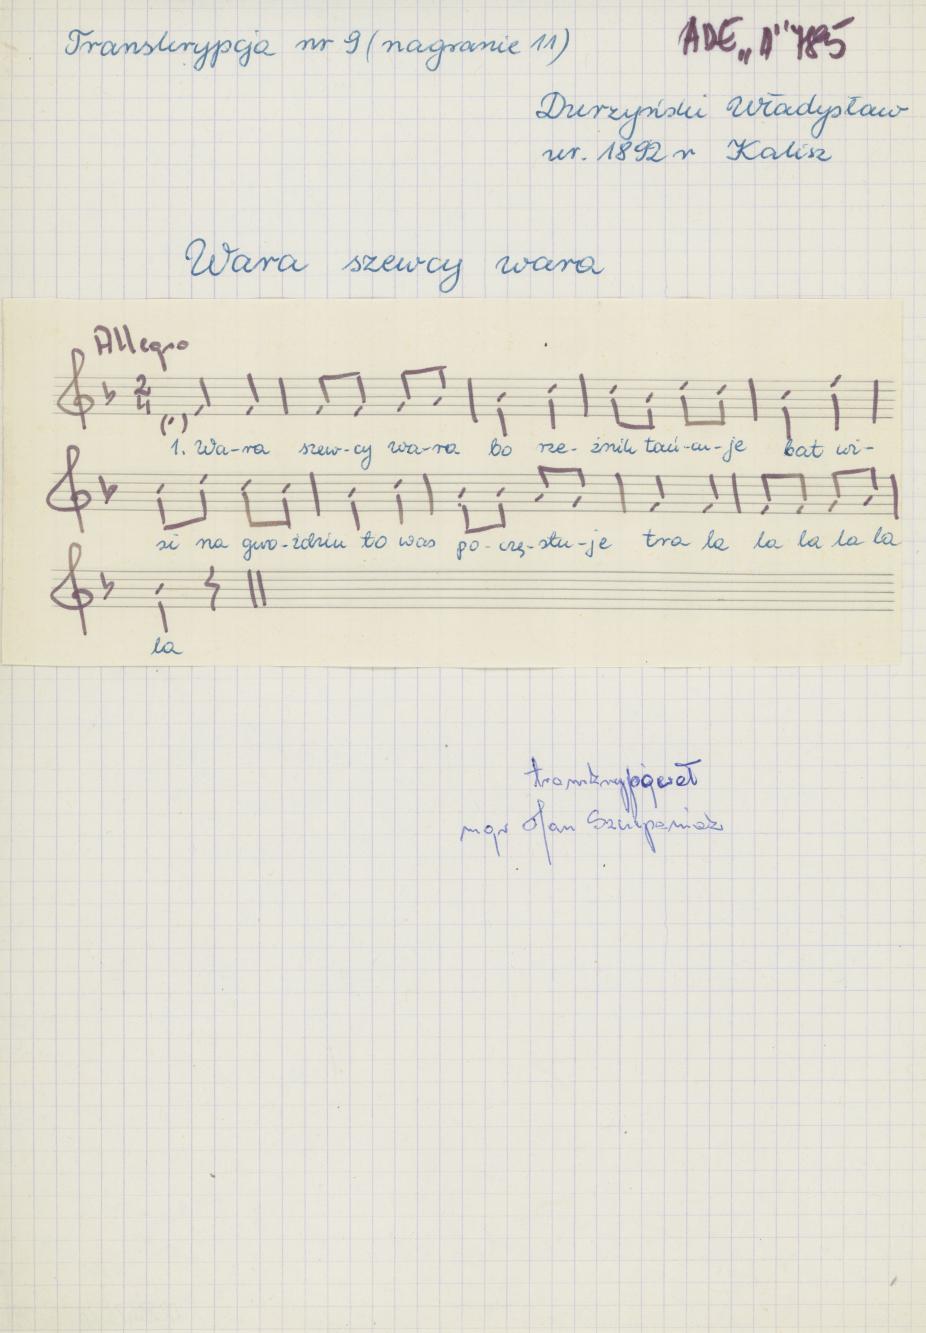 Transkrypcja nr 9 (nagranie 11)
ADE „A" 785
Durzyński Władysław
ur. 1892 r Kalisz
Wara szewcy wara
Allegro
1. Wa-ra szew-cy wa-ra bo rze-źnik tań-cu-je bat wi-
si na gwo-ździu to was po-czę-stu-je tra la la la la la
la
transkrypował
mgr Jan Szczepaniak